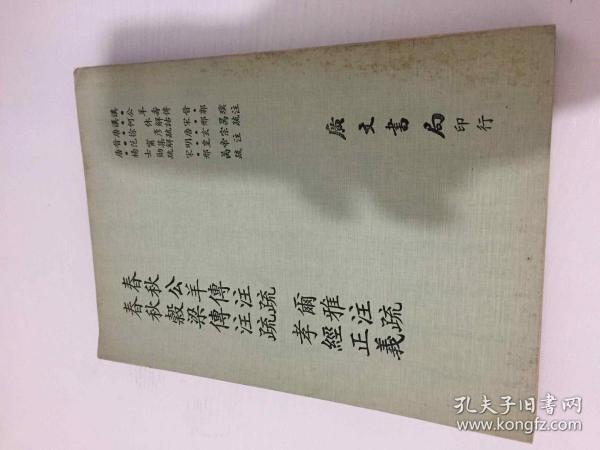 春秋公羊傳注疏
春秋穀梁傳注疏
爾雅注疏
孝經正義
漢・公羊壽傳
漢・何休解詁
唐・徐彥疏
唐・楊士勛疏
晉・郭璞注
宋・邢昺疏
廣文書局印行
孔夫子旧书网
www.kongfz.com